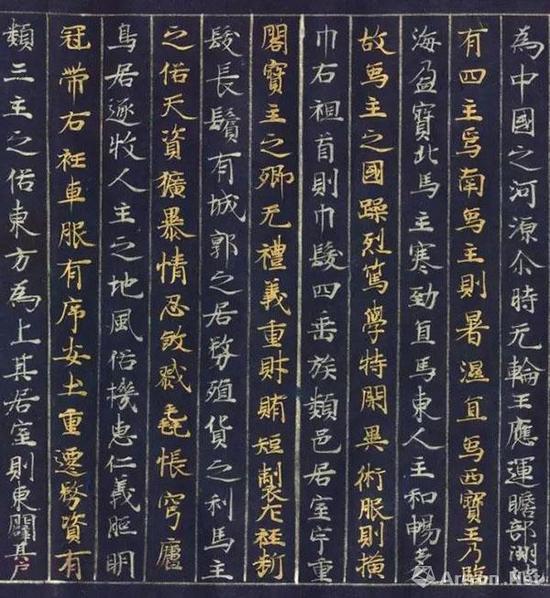 為中國之河源尒時无輪王應運瞻部洲地
有四主焉南象主則暑濕宜象西寶主乃臨
海盈寶北馬主寒勁宜馬東人主和暢多人
故象主之國躁烈篤學特閑異術服則横
巾右袒首則巾髮四垂族類邑居室宇重
閣寶主之鄉无禮義重財賄短製左衽斬
髮長鬚有城郭之居務殖貨之利馬主
之俗天資獷暴情忍敓戮毳帳穹廬
鳥居逐牧人主之地風俗機惠仁義照明
冠帶右衽車服有序安土重遷務資有
類三主之俗東方為上其居室則東闢其戶
Artron.Net